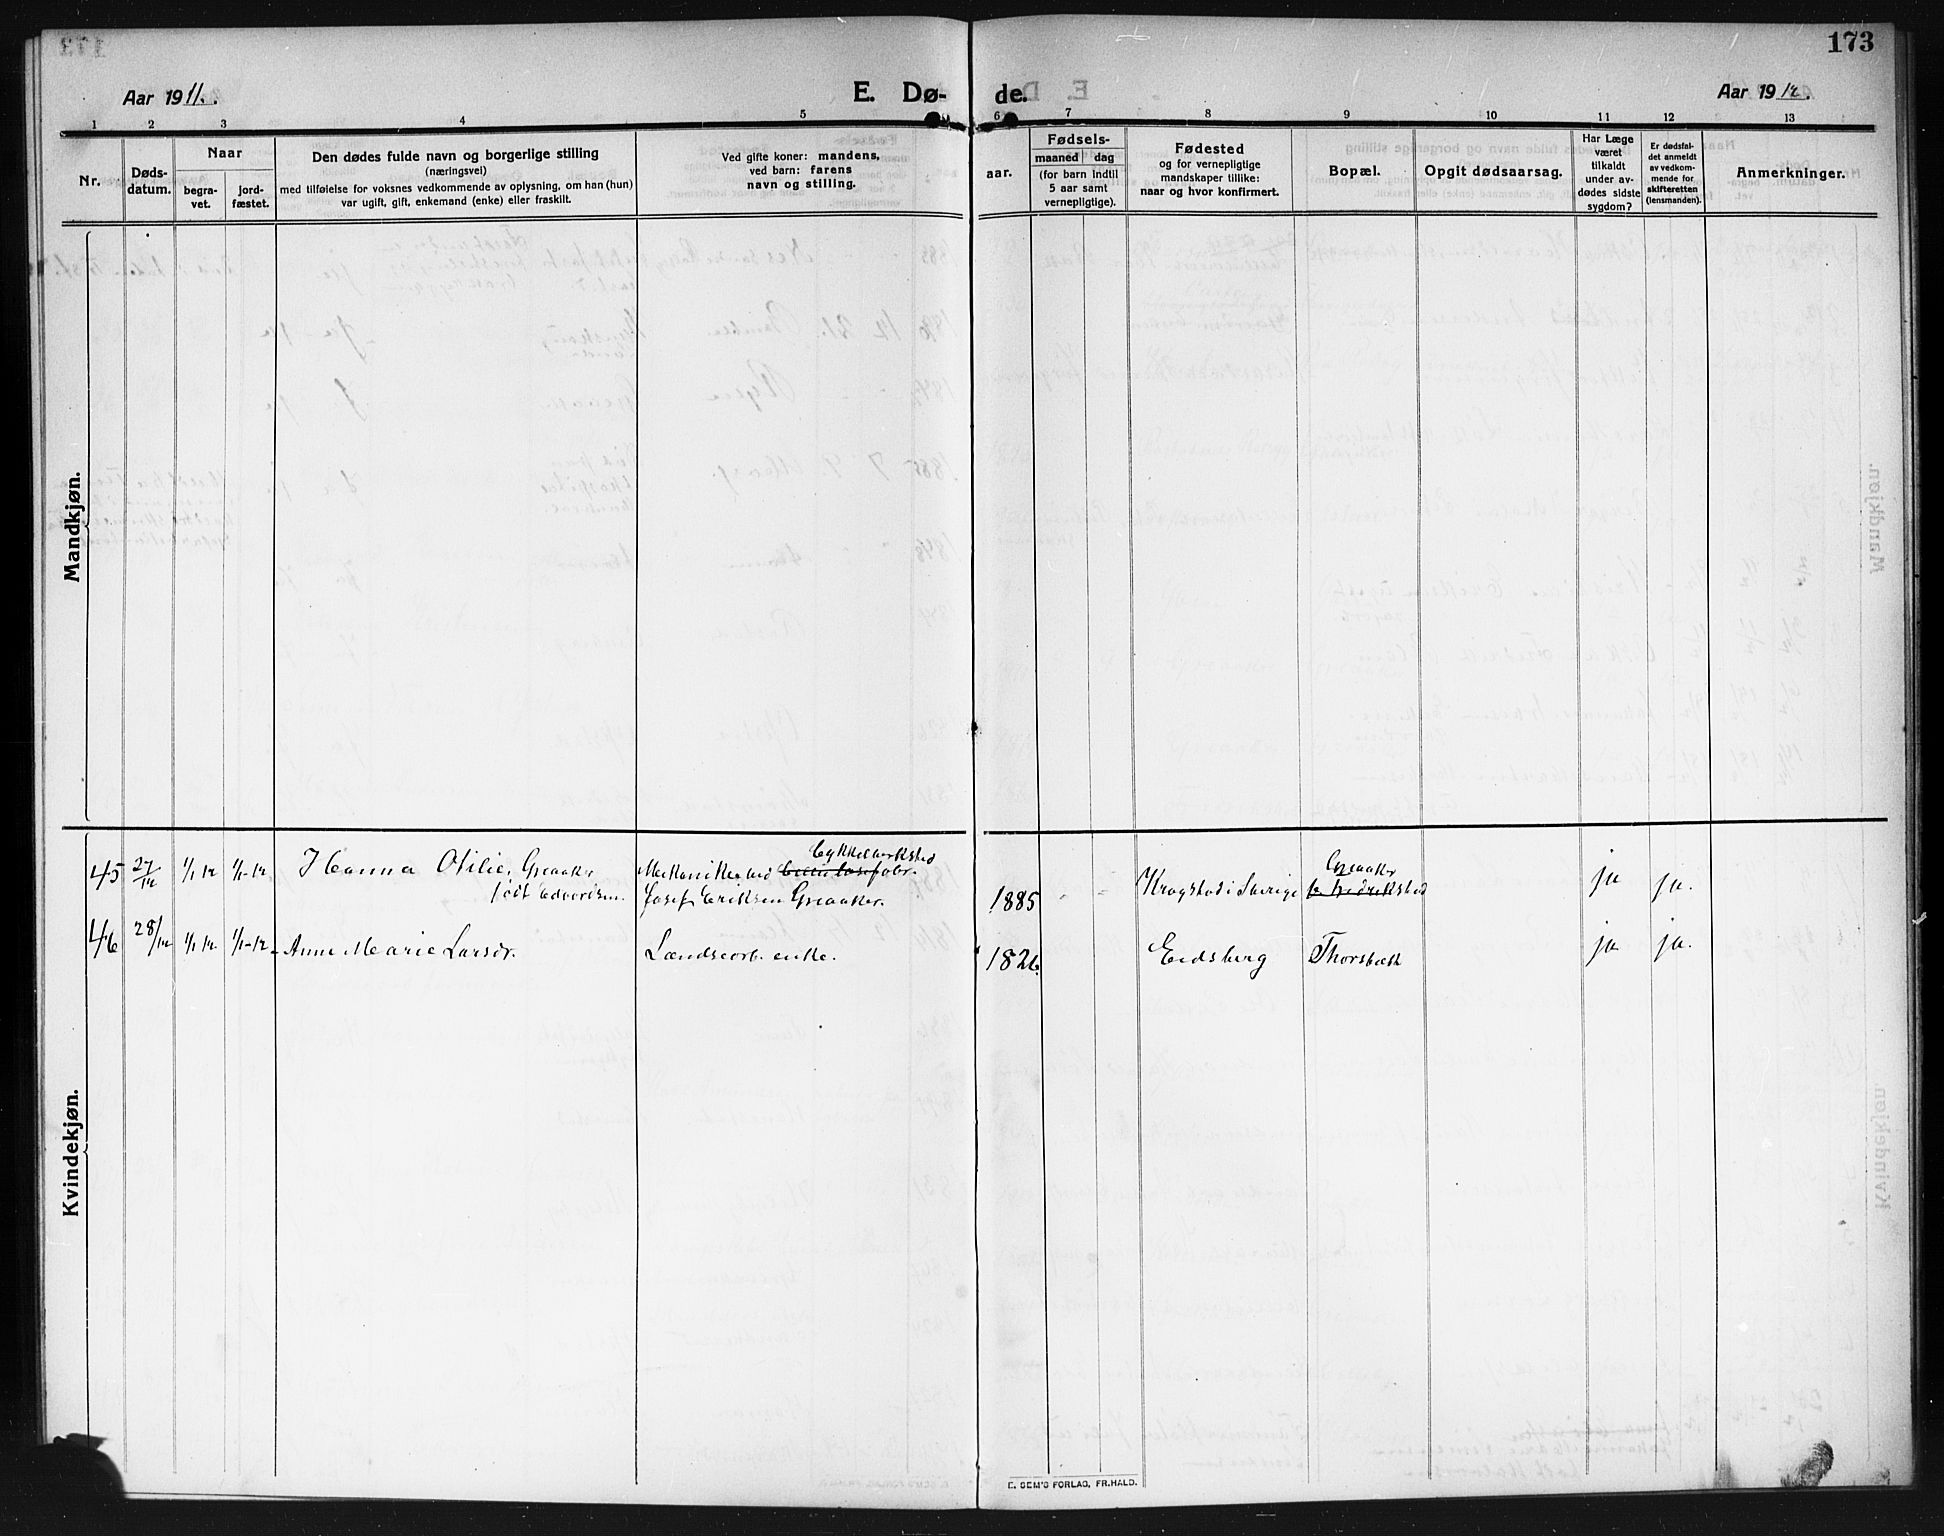 173
Aar 1911.
E. Dø-
de.
Aar 1912.
1 2 3 4 5 6 7 8 9 10 11 12 13
Nr.
Døds-
datum.
Naar
begra-
vet.
jord-
fæstet.
Den dødes fulde navn og borgerlige stilling
(næringsvei)
med tilføielse for voksnes vedkommende av oplysning, om han (hun)
var ugift, gift, enkemand (enke) eller fraskilt.
Ved gifte koner: mandens,
ved barn: farens
navn og stilling.
aar.
Fødsels-
maaned dag
(for barn indtil
5 aar samt
vernepligtige).
Fødested
og for vernepligtige
mandskaper tillike:
naar og hvor konfirmert.
Bopæl.
Opgit dødsaarsag.
Har Læge
været
tilkaldt
under av-
dødes sidste
sygdom?
Er dødsfal-
det anmeldt
av vedkom-
mende for
skifteretten
(lensmanden).
Anmerkninger.
Mandkjøn.
Kvindekjøn.
45 27/12 1/1 12 1/1-12 Hanna Otilie Greaaker
født Edvardsen.
Cykkelverksted
Josef Eriksen Greaaker.
1885 - - Krogstad i Sverige
Greaaker
ja ja.
46 28/12 1/1 12 1/1-12 Anne Marie Larsdr.
Landseorb. enke.
1826. Eidsberg Thorsbæk ja ja.
E. SEM'S FORLAG, FR.HALD.